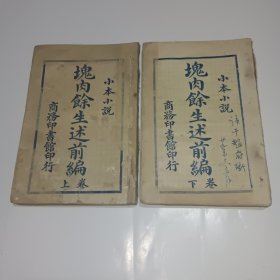 小本小說
塊肉餘生述前編
卷上
商務印書館印行
小本小說
塊肉餘生述前編
卷下
商務印書館印行